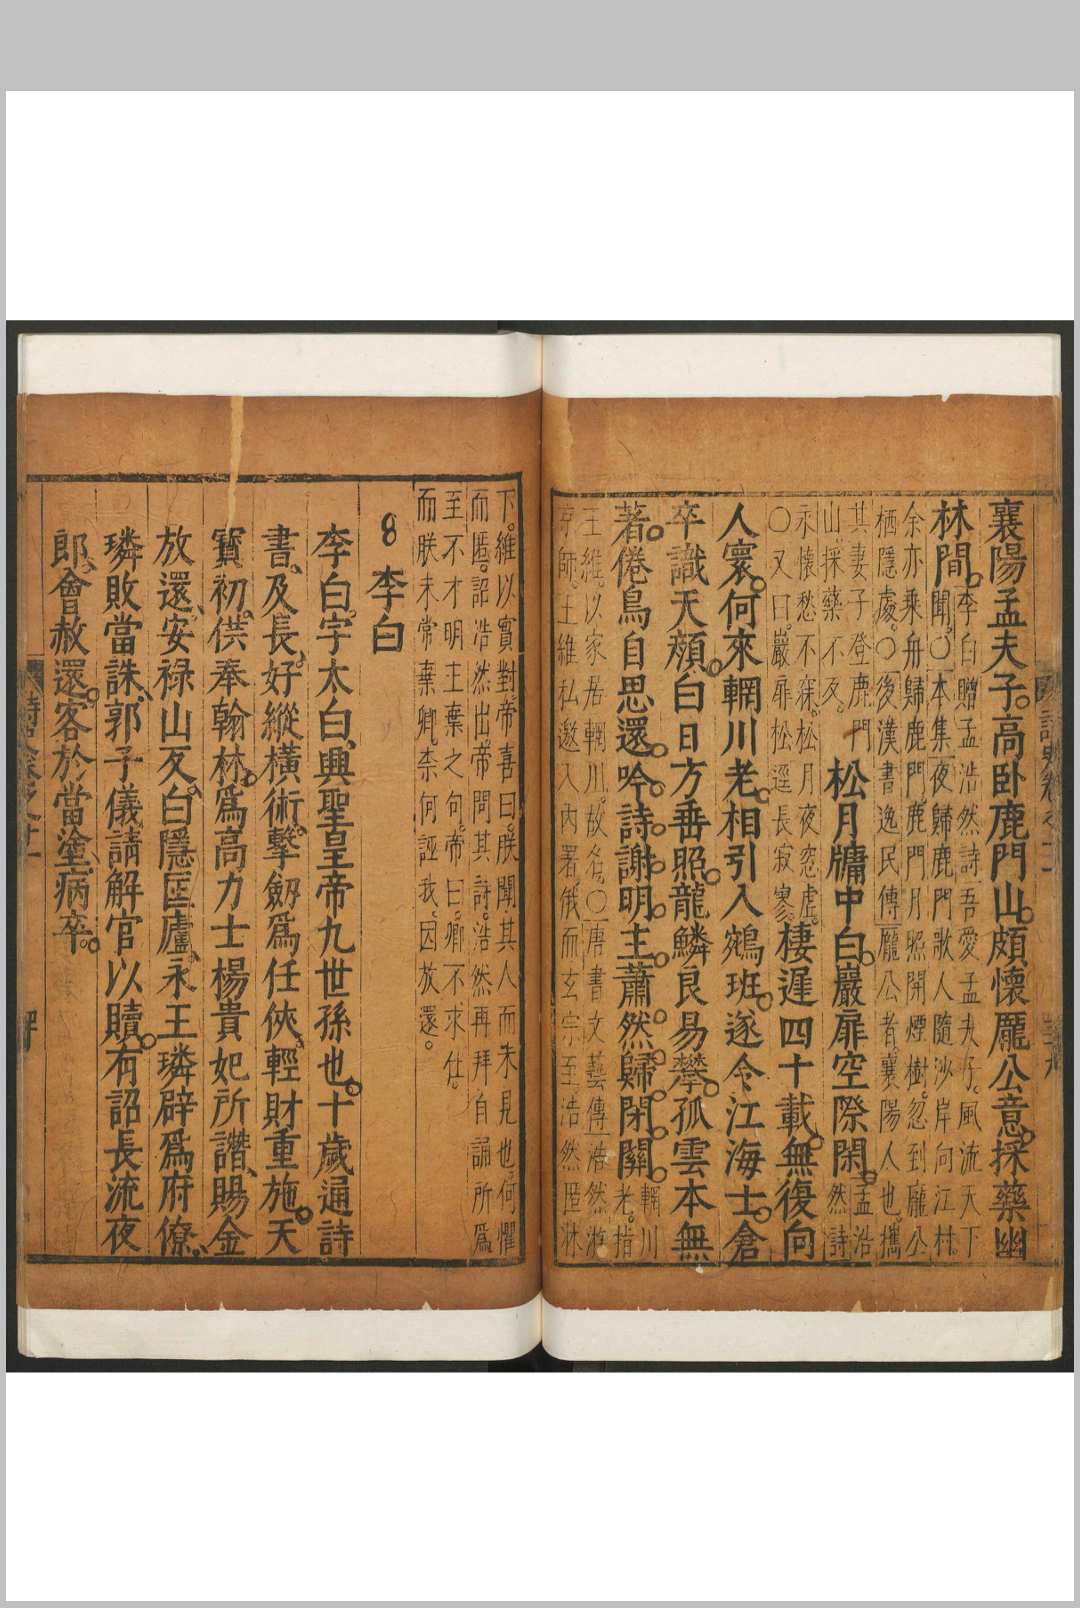 襄陽孟夫子。高卧鹿門山。頗懷龐公意。採藥幽
林間。李白贈孟浩然詩吾愛孟夫子。風流天下
聞。〇本集夜歸鹿門歌人隨沙岸向江村。
余亦乗舟歸鹿門鹿門月照開煙樹。忽到龐公
栖隱處。〇後漢書逸民傳龐公者襄陽人也。攜
其妻子登鹿門
山。採藥不反。
松月牖中白。巖扉空際閑。
孟浩
然詩
永懷愁不寐。松月夜窓虚。
〇又曰。巖扉松逕長寂寥。
棲遲四十載。無復向
人寰。何來輞川老。相引入鵷班。遂令江海士。倉
卒識天顔。白日方垂照。龍鱗良易攀。孤雲本無
著。倦鳥自思還。吟詩謝明主蕭然歸閉關。
輞川
老。指
王維。以家居輞川。故名。〇唐書文藝傳浩然游
京師。王維私邀入内署俄而玄宗至浩然匿牀
下。維以實對。帝喜曰。朕聞其人而未見也。何懼
而匿。詔浩然出。帝問其詩。浩然再拜自誦所爲
至不才明主棄之句。帝曰。卿不求仕。
而朕未常棄卿。柰何誣我。因放還。
8 李白
李白。字太白。興聖皇帝九世孫也。十歲通詩
書。及長。好縱横術。擊劒爲任俠。輕財重施。天
寳初。供奉翰林。爲高力士楊貴妃所譖、賜金
放還、安禄山反。白隱匡廬。永王璘辟爲府僚、
璘敗當誅。郭子儀請解官以贖。有詔長流夜
郎。會赦還。客於當塗。病卒。